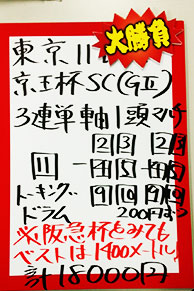 大勝負
東京11R
京王杯SC(GⅡ)
3連単軸1頭マルチ
2 3 2 3
11 - 5 - 5
トーキング 9 10 9 10
ドラム 200円
※阪急杯をみても
ベストは1400メートル
計18000円